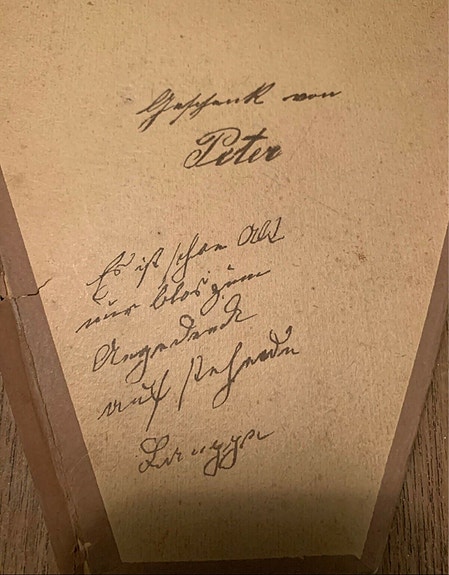 Geschenk von
Peter
Es ist schon Alt
nur blos zum
Angedenk
auf